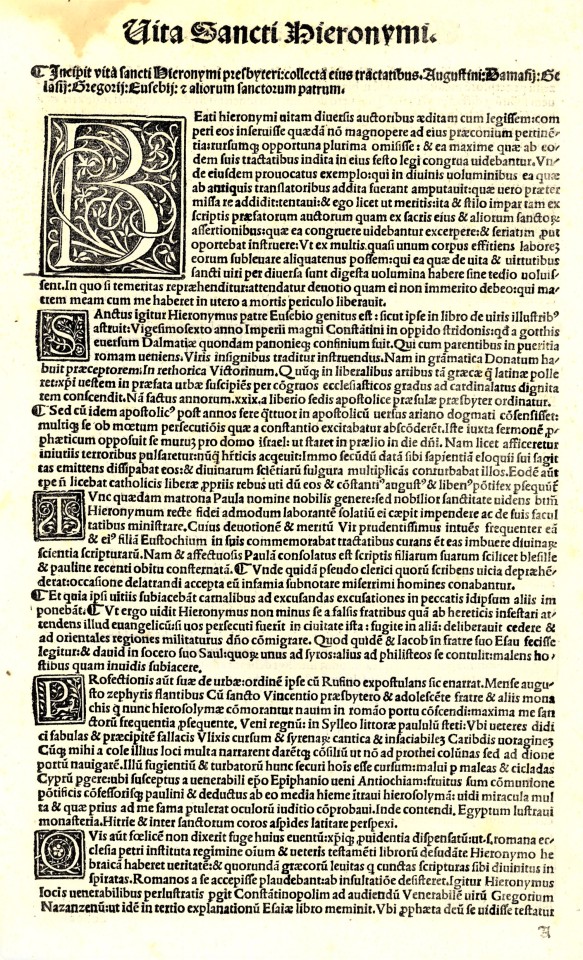 Vita Sancti Hieronymi.
¶ Incipit vita sancti Hieronymi presbyteri: collecta eius tractatibus. Augustini: Damasij: Ge
lasij: Gregorij: Eusebij: ⁊ aliorum sanctorum patrum.
BEati hieronymi uitam diuersis auctoribus æditam cum legissem: com
peri eos inseruisse quædã nõ magnopere ad eius præconium pertinẽ/
tia: rursumq; opportuna plurima omisisse: & ea maxime quæ ab eo/
dem suis tractatibus indita in eius festo legi congrua uidebantur. Vn/
de eiusdem prouocatus exemplo: qui in diuinis uoluminibus ea quæ
ab antiquis translatoribus addita fuerant amputauit: quæ uero præter
missa re addidit: tentaui: & ego licet ut meritis: ita & stilo impar tam ex
scriptis præfatorum auctorum quam ex sacris eius & aliorum sanctoꝝ
assertionibus: quæ ea congruere uidebantur excerpere: & seriatim put
oportebat instruere: Vt ex multis quasi unum corpus effitiens laborẽ
eorum subleuare aliquatenus possem: qui ea quæ de uita & uirtutibus
sancti uiri per diuersa sunt digesta uolumina habere sine tedio uoluis/
sent. In quo si temeritas repræhenditur: attendatur deuotio quam ei non immerito debeo: qui ma/
trem meam cum me haberet in utero a mortis periculo liberauit.
SAnctus igitur Hieronymus patre Eusebio genitus est: sicut ipse in libro de uiris illustribꝰ
astruit: Vigesimosexto anno Imperii magni Constãtini in oppido stridonis: qđ a gotthis
euersum Dalmatiæ quondam panonieq; confinium fuit. Qui cum parentibus in pueritia
romam ueniens. Viris insignibus traditur instruendus. Nam in grãmatica Donatum ha/
buit præceptorem: In rethorica Victorinum. Quũq; in liberalibus artibus tã græca ꝙ̃ latina polle
ret: xp̃i uestem in præfata urbæ suscipiẽs per cõgruos ecclesiasticos gradus ad cardinalatus dignita
tem conscendit. Nã factus annorum .xxix. a liberio sedis apostolice præsulæ præsbyter ordinatur.
¶ Sed cũ idem apostolicꝰ post annos fere q̃ttuor in apostolicũ uersus ariano dogmati cõsensisset:
multiq; se ob mœtum persecutiõis quæ a constantio excitabatur abscõderẽt. Iste iuxta sermonẽ ꝓ/
phæticum opposuit se muruꝫ pro domo israel: ut staret in prælio in die dñi. Nam licet afficeretur
iniuriis terroribus pulsaretur: nũq̃ hr̃ticis acquieuit: Immo secũdũ datã sibi sapientiã eloquii sui sagit
tas emittens dissipabat eos: & diuinarum sciẽtiarũ fulgura multiplicãs conturbabat illos. Eodẽ aũt
tpe ñ licebat catholicis liberæ ꝓpriis rebus uti dũ eos & cõstantiꝰ augustꝰ & libenꝰ põtifex ꝑsequũt̃
TVnc quædam matrona Paula nomine nobilis genere: sed nobilior sanctitate uidens btm̃
Hieronymum recte fidei admodum laborantẽ solatiũ ei cæpit impendere ac de suis facul
tatibus ministrare. Cuius deuotionẽ & meritũ Vir prudentissimus intuẽs frequenter eã
& eiꝰ filiã Eustochium in suis commemorabat tractatibus curans ẽt eas imbuere diuinaꝝ
scientia scripturarũ. Nam & affectuosis Paulã consolatus est scriptis filiarum suarum scilicet blesille
& pauline recenti obitu consternatã. ¶ Vnde quidã pseudo clerici quorũ scribens uicia depræhẽ/
derat: occasione delatrandi accepta eũ infamia subnotare miserrimi homines conabantur.
¶ Et quia ipsi uitiis subiacebãt carnalibus ad excusandas excusationes in peccatis idipsum aliis im
ponebãt. ¶ Vt ergo uidit Hieronymus non minus se a falsis fratribus quã ab hereticis infestari at/
tendens illud euangelicũ: si uos persecuti fuerĩt in ciuitate ista: fugite in aliã: deliberauit cedere &
ad orientales regiones militaturus dño cõmigrare. Quod quidẽ & Iacob in fratre suo Esau fecisse
legitur: & dauid in socero suo Saul: quoꝝ unus ad syros: alius ad philisteos se contulit: malens ho/
stibus quam inuidis subiacere.
PRofectionis aũt suæ de urbæ: ordinẽ ipse cũ Rufino expostulans sic enarrat. Mense augu/
sto zephyris flantibus Cũ sancto Vincentio præsbytero & adolescẽte fratre & aliis mona
chis q̃ nunc hierosolymæ cõmorantur nauim in romão portu cõscendi: maxima me san
ctorũ frequentia ꝓsequente. Veni regnũ: in Sylleo littoræ paululũ steti: Vbi ueteres didi
ci fabulas & præcipitẽ fallacis Vlixis cursum & syrenaꝝ: cantica & insaciabileꝫ Caribdis uoragineꝫ
Cũq; mihi a cole illius loci multa narrarent darẽtq; cõsiliũ ut nõ ad prothei colũnas sed ad dione
portũ nauigarẽ. Illũ fugientiũ & turbatorũ hunc securi hoĩs esse cursum: malui ꝑ maleas & cicladas
Cyprũ pgere: ubi susceptus a uenerabili ep̃o Epiphanio ueni Antiochiam: fruitus sum cõmunione
põtificis cõfessorisq; paulini & deductus ab eo media hieme ĩtraui hierosolymã: uidi miracula mul
ta & quæ prius ad me fama ptulerat oculorũ iuditio cõprobaui. Inde contendi. Egyptum lustraui
monasteria. Hitrie & inter sanctorum coros aspides latitare perspexi.
QVis aũt fœlicẽ non dixerit fuge huius euentũ: xp̃iq; ꝓuidentia dispensatũ: ut .s. romana ec/
clesia petri instituta regimine oĩum & ueteris testamẽti librorũ desudãte Hieronymo he
braicã haberet ueritatẽ: & quorundã græcorũ leuitas q̃ cunctas scripturas sibi diuinitus in
spiratas. Romanos a se accepisse plaudebant: ab insultatiõe desisteret. Igitur Hieronymus
locis uenerabilibus perlustratis ꝑgit Constãtinopolim ad audiendũ Venerabilẽ uirũ Gregorium
Nazanzenũ: ut idẽ in tertio explanationũ Esaiæ libro meminit. Vbi ꝓphæta deũ se uidisse testatur
A